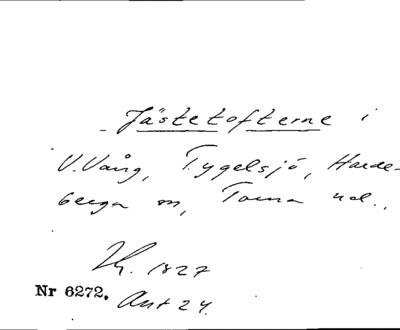 Jästetofterne i
V. Vång, Tygelsjö, Harde-
berga sn, Torna hd.,
1827
Nr 6272. Ant 24.